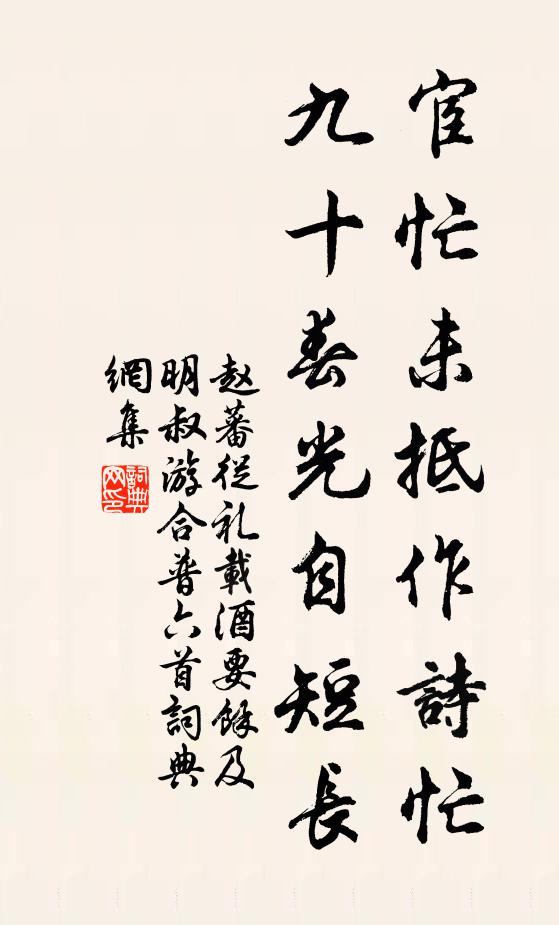 宦忙未抵作詩忙
九十春光自短長
赵蕃從礼載酒要餘及
明叔游合普六首詞典
網集
詞典
网印